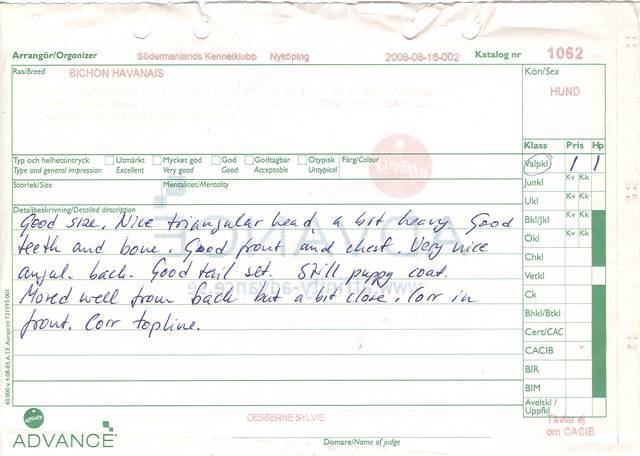 Arrangör/Organizer Södermanlands Kennelklubb Nyköping 2008-08-16-002 Katalog nr 1062
Ras/Breed BICHON HAVANAIS Kön/Sex
HUND
Klass Pris Hp
Typ och helhetsintryck Utmärkt Mycket god God Godtagbar Otypisk Färg/Colour Valpkl 1 1
Type and general impression Excellent Very good Good Acceptable Untypical
Junkl Kv Kk
Storlek/Size Mentalitet/Mentality
Ukl Kv Kk
Detaljbeskrivning/Detailed description
Good size. Nice triangular head, a bit heavy. Good Bkl/Jkl Kv Kk
teeth and bone. Good front and chest. Very nice Ökl Kv Kk
angul. back. Good tail set. Still puppy coat. Chkl
Vetkl
Moved well from back but a bit close. Corr in Ck
front. Corr topline. Bhkl/Btkl
Cert/CAC
CACIB
BIR
BIM
Avelskl / Uppfkl
60.000 v 4.08-03.A.T.E.
affinity
ADVANCE
DESSERNE SYLVIE
Domare/Name of judge
Tävlar ej
om CACIB
affinity
ADVANCE
www.affinity-advance.se